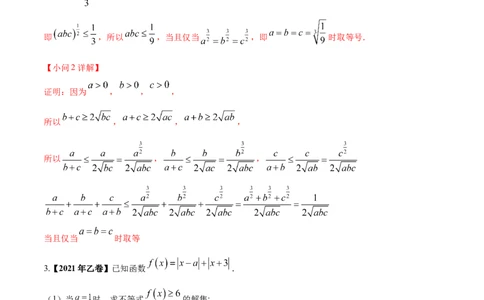 3
即 (abc)^{1/2} ≤ 1/3，所以 abc ≤ 1/9，当且仅当 a^{3/2} = b^{3/2} = c^{3/2}，即 a = b = c = ∛(1/9) 时取等号．
【小问2详解】
证明：因为 a>0，b>0，c>0，
所以 b+c ≥ 2√bc，a+c ≥ 2√ac，a+b ≥ 2√ab，
所以 a/(b+c) ≤ a/(2√bc) = a^{3/2}/(2√abc)，b/(a+c) ≤ b/(2√ac) = b^{3/2}/(2√abc)，c/(a+b) ≤ c/(2√ab) = c^{3/2}/(2√abc)
a/(b+c) + b/(a+c) + c/(a+b) ≤ a^{3/2}/(2√abc) + b^{3/2}/(2√abc) + c^{3/2}/(2√abc) = (a^{3/2}+b^{3/2}+c^{3/2})/(2√abc) = 1/(2√abc)
当且仅当 a=b=c 时取等
3.【2021年乙卷】已知函数 f(x)=|x−a|+|x+3|．
（1）当 a=1 时，求不等式 f(x)≥6 的解集；